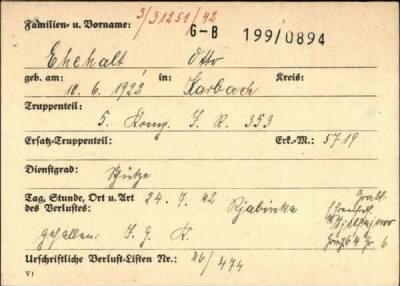 3/31251/42
Familien- u. Vorname: G-B 199/0894
Ehehalt Otto
geb. am: 10.6.1922 in: Karbach Kreis:
Truppenteil:
5. Komp. I. R. 353
Ersatz-Truppenteil: Erk.-M.: 5719
Dienstgrad: Schütze
Tag, Stunde, Ort u. Art des Verlustes: 24. 7. 42 Rjabinka
gefallen: I. G. K.
Grab 64 Gr. 6
Urschriftliche Verlust-Listen Nr.: 26/474
V1